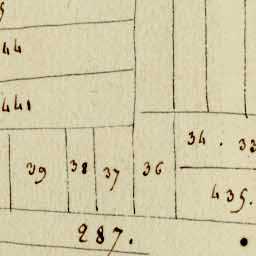 44
441
34. 33
39 38 37 36
435.
287.